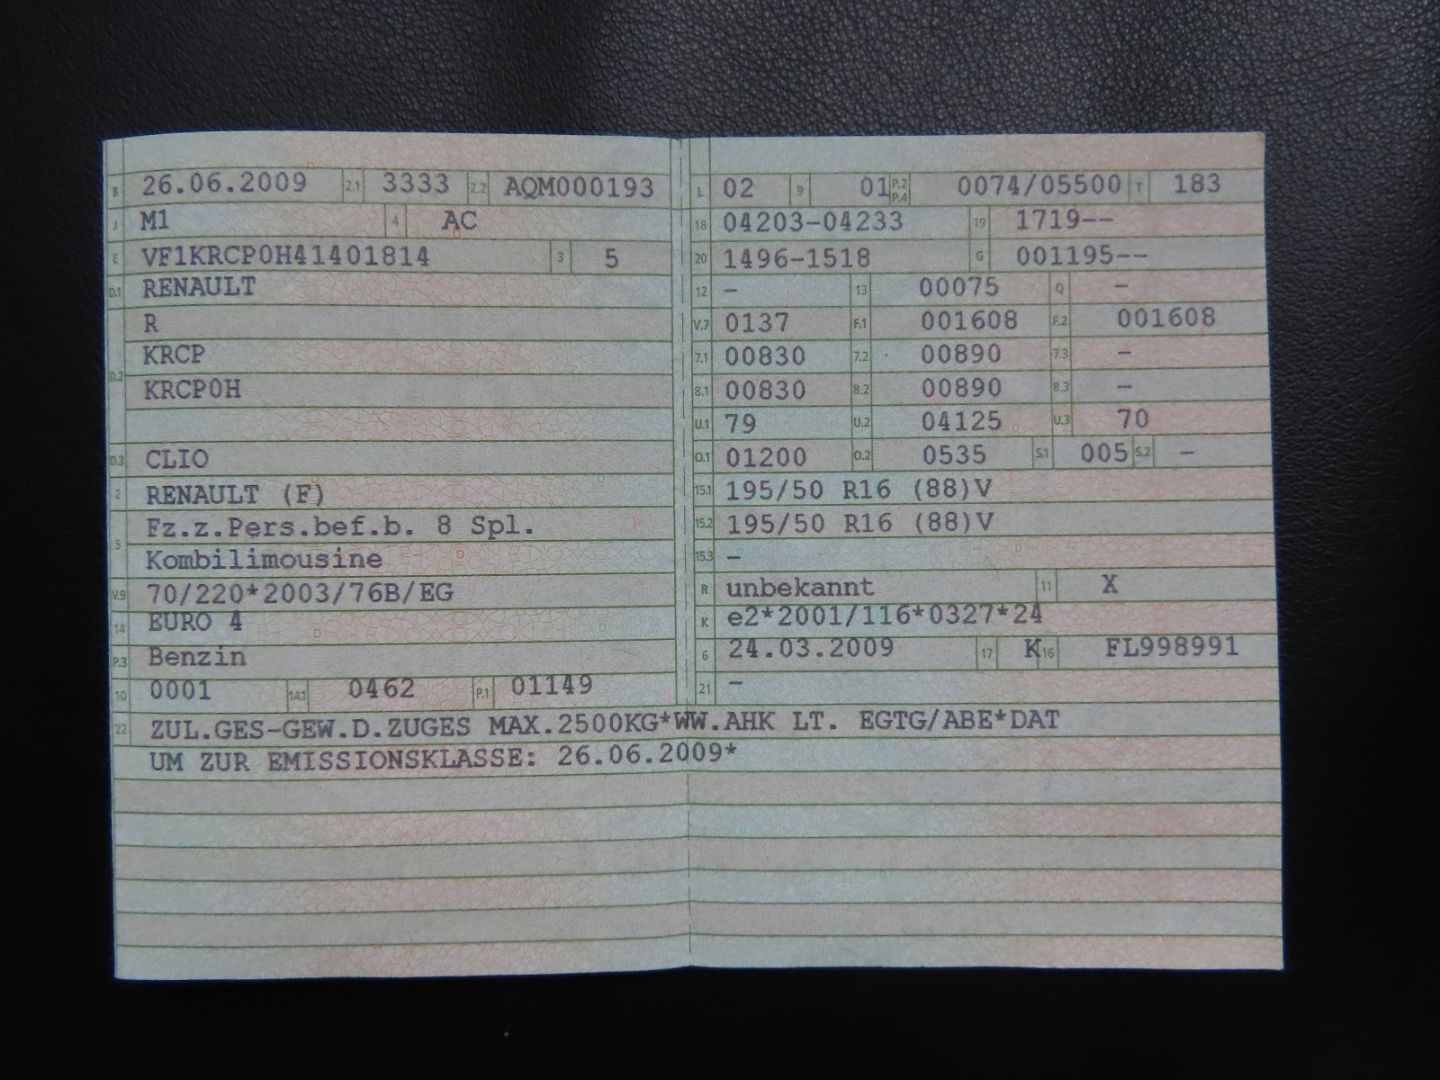 B 26.06.2009 2.1 3333 2.2 AQM000193
J M1 4 AC
E VF1KRCP0H41401814 3 5
D.1 RENAULT
R
D.2 KRCP
KRCP0H
D.3 CLIO
2 RENAULT (F)
Fz.z.Pers.bef.b. 8 Spl.
5 Kombilimousine
V.9 70/220*2003/76B/EG
14 EURO 4
P.3 Benzin
10 0001 14.1 0462 P.1 01149
L 02 9 01 P.2 P.4 0074/05500 T 183
18 04203-04233 19 1719--
20 1496-1518 G 001195--
12 - 13 00075 Q -
V.7 0137 F.1 001608 F.2 001608
7.1 00830 7.2 00890 7.3 -
8.1 00830 8.2 00890 8.3 -
U.1 79 U.2 04125 U.3 70
O.1 01200 O.2 0535 S.1 005 S.2 -
15.1 195/50 R16 (88)V
15.2 195/50 R16 (88)V
15.3 -
R unbekannt 11 X
K e2*2001/116*0327*24
6 24.03.2009 17 K 16 FL998991
21 -
22 ZUL.GES-GEW.D.ZUGES MAX.2500KG*WW.AHK LT. EGTG/ABE*DAT
UM ZUR EMISSIONSKLASSE: 26.06.2009*